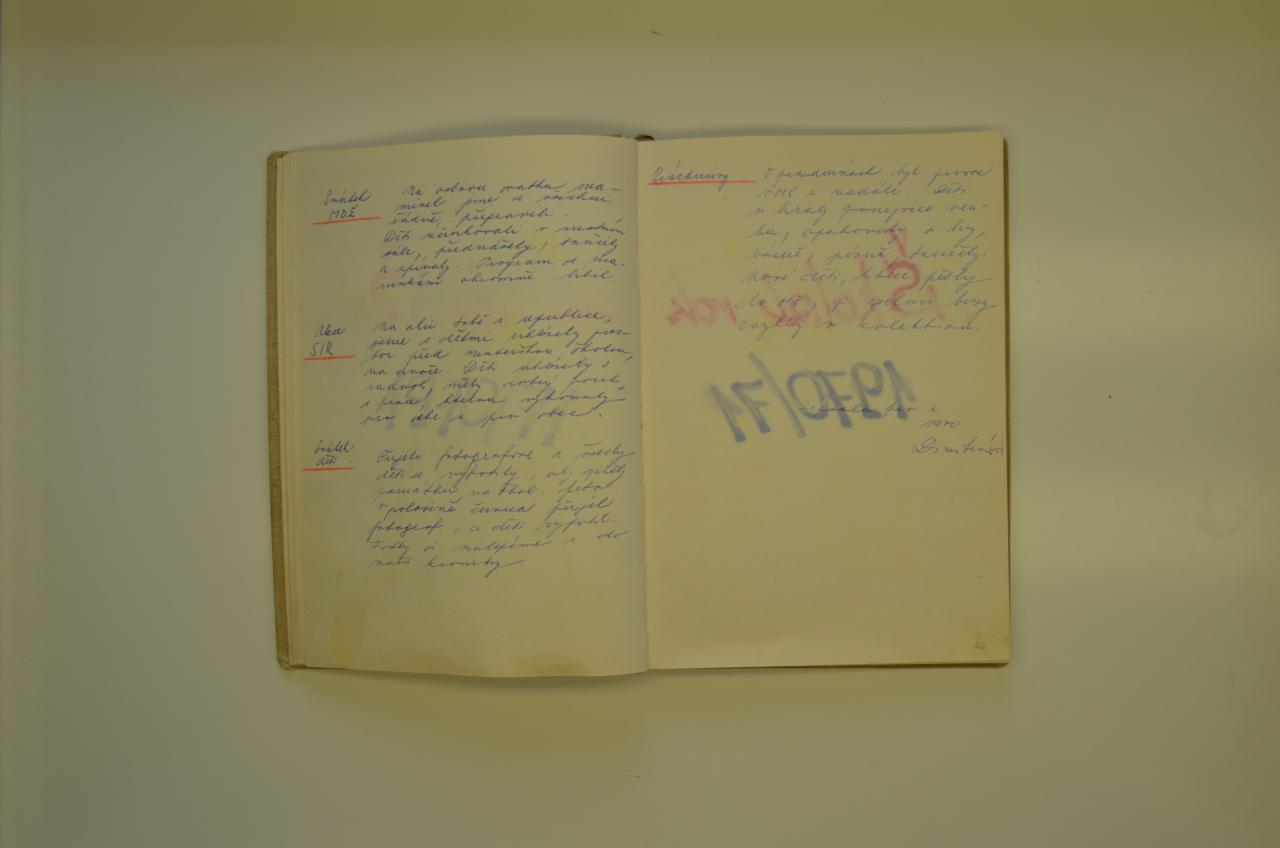 Svátek
MDŽ
Na oslavu svátku ma-
minek jsme se všichni
řádně připravili.
Děti účinkovali v
sále, přednášely, tančily
a zpívaly. Program se ma-
minkám ohromně líbil.
Akce
SIR
Na akci Tobě republiko,
jsme s dětmi uklízely pros-
tor před mateřskou školou,
na dvoře. Děti uklízely s
radostí, měly dobrý pocit
z práce, kterou vykonaly
pro sebe i pro obec.
Svátek
dětí.
Přijeli fotografové a všechny
děti se vyfotily, aby měly
památku na škol.
V polovině června přijel
fotograf, a děti vyfotil.
Fotky si nalepíme i do
naší kroniky.
Prázdniny
O prázdninách byl provoz
v MŠ i nadále. Děti
si hrály ponejvíce ven-
ku, opakovaly si hry,
básně, písně, tanečky.
Nové děti, které přišly
do MŠ, se velmi brzy
sžily s kolektivem.
1970
26
Školní rok
1970/71